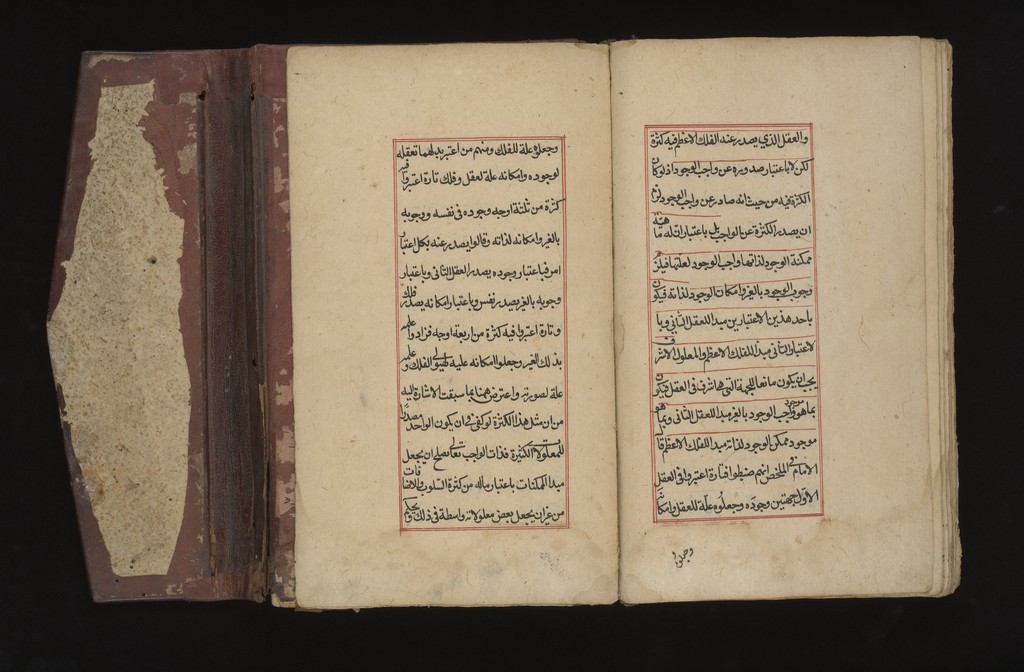 والعقل الذي يصدر عنه الفلك الاعظم فيه كثرة
لكن لا باعتبار صدوره عن واجب الوجود اذ لو كان
الكثرة فيه من حيث انه صادر عن واجب الوجود لزم
ان يصدر الكثرة عن الواجب بل باعتبار ان له ماهية
ممكنة الوجود لذاتها واجب الوجود لعلتها فيلزم
وجوب الوجود بالغير وامكان الوجود لذاته فيكون
باحد هذين الاعتبارين مبدا للعقل الثاني وبا
لاعتبار الثاني مبدأ للفلك الاعظم والمعلول الاشرف
يجب ان يكون تابعا للجهة التي هي اشرف في العقل فيكون
بما هو موجود واجب الوجود بالغير مبدا للعقل الثاني وبما هو
موجود ممكن الوجود لذاته مبدا للفلك الاعظم قا
الامام في الملخص انهم خبطوا فتارة اعتبروا في العقل
الاول جهتين وجوده وجعلوه علة للعقل وامكانه
وجعلوه
وجعلوه علة للفلك ومنهم من اعتبر بدلهما تعقله
لوجوده وامكانه علة لعقل وفلك تارة اعتبروا فيه
كثرة من ثلثة اوجه وجوده في نفسه ووجوبه
بالغير وامكانه لذاته وقالوا يصدر عنه بكل اعتبار
امر فباعتبار وجوده يصدر العقل الثاني وباعتبار
وجوبه بالغير يصدر نفس وباعتبار امكانه يصدر فلك
وتارة اعتبروا فيه كثرة من اربعة اوجه فزادوا علمه
بذلك الغير وجعلوا امكانه علة لهيولي الفلك و علمه
علة لصورته واعترض ههنا بما سبقت الاشارة اليه
من ان مثل هذا الكثرة لو كفى في ان يكون الواحد مصدرا
للمعلولات الكثيرة فذات الواجب تعالى يصلح ان يجعل
مبدا للممكنات باعتبار ماله من كثرة السلوب والاضافات
من غير ان يجعل بعض معلولاته واسطة في ذلك ويحكم